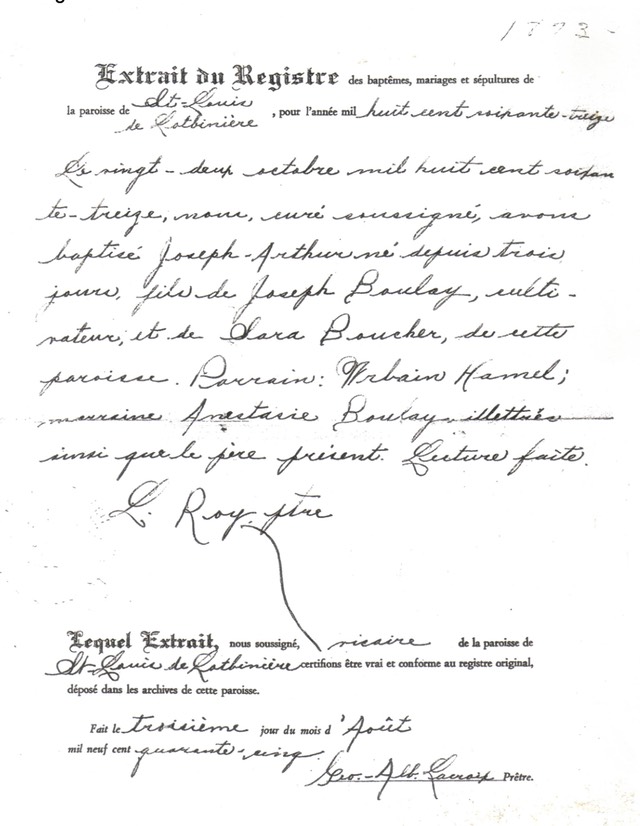 1873-
Extrait du Registre des baptêmes, mariages et sépultures de
la paroisse de St-Louis
de Lotbinière, pour l'année mil huit cent soixante-treize
Le vingt-deux octobre mil huit cent soixan
te-treize, nous, curé soussigné, avons
baptisé Joseph-Arthur né depuis trois
jours, fils de Joseph Boulay, culti-
vateur, et de Sara Boucher, de cette
paroisse. Parrain: Urbain Hamel;
marraine Anastasie Boulay illettrés
ainsi que le père présent. Lecture faite.
L. Roy ptre
Lequel Extrait, nous soussigné, vicaire de la paroisse de
St-Louis de Lotbinière certifions être vrai et conforme au registre original,
déposé dans les archives de cette paroisse.
Fait le troisième jour du mois d'Août
mil neuf cent quarante-cinq.
Geo.-Alb. Lacroix Prêtre.